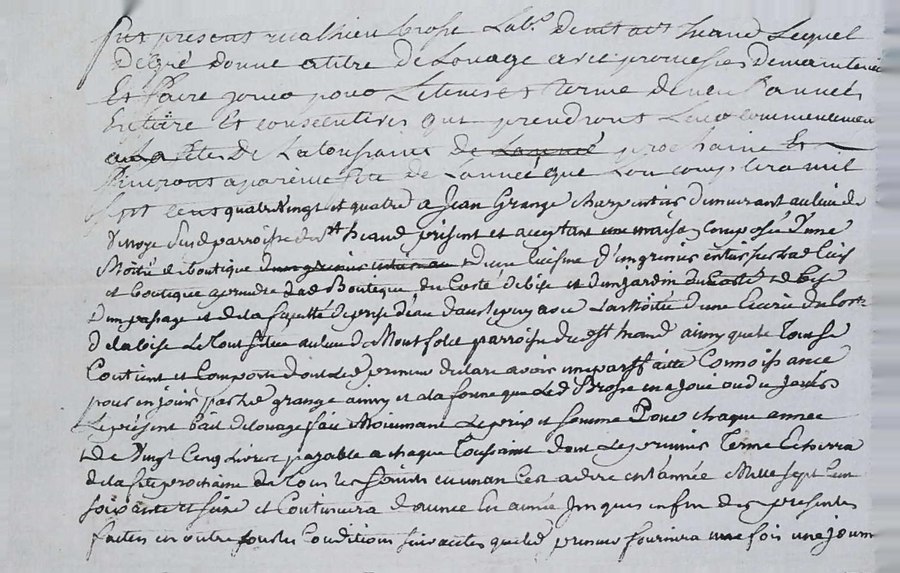 fut present Mathieu brosse Lab.r de St haand Lequel
De gré donne a titre De Louage avec promesses De maintenir
Et faire jouir pour Le tems et terme de neuf années
Entiere Et consecutives qui prendront Leur commencement
a La fête De La toussaint de L'année prochaine Et
finiront a pareille fete de L'année que L'on comptera mil
sept cent quatre vingt et quatre a Jean Grange charpentier demeurant au lieu de
parroisse de St haand present et acceptant une maison Composée d'une
Moitié de boutique d'un grenier d'une Cuisine d'un grenier entier sur lad Cuis
et boutique a prendre lad Boutique du Coté de bise et d'un jardin du Coté de bise
d'un passage et de la faculté de prise d'eau dans Le puy avec La moitié d'une Ecurie du Cote
De la bise Le Tout situé au lieu de Montfolce parroisse dud St haand ainsy que le Tout se
Contient et Comporte dont Led preneur declare avoir une parfaitte Connoissance
pour en jouir par led grange ainsy et a la forme que Led Brosse en a joui ou du jouir
Le présent bail de louage fait moiennant Le prix et somme Pour chaque année
de Vingt Cinq Livres payable a chaque Toussaint dont Le premier Terme Echerra
de la fête prochaine de Tous les saints en un an C'est a dire en L'année Mille sept Cent
soixante et seize et Continuera d'année En année Jusques en fin des presentes
faites en outre sous les Conditions suivantes que led preneur fournira une fois une journ